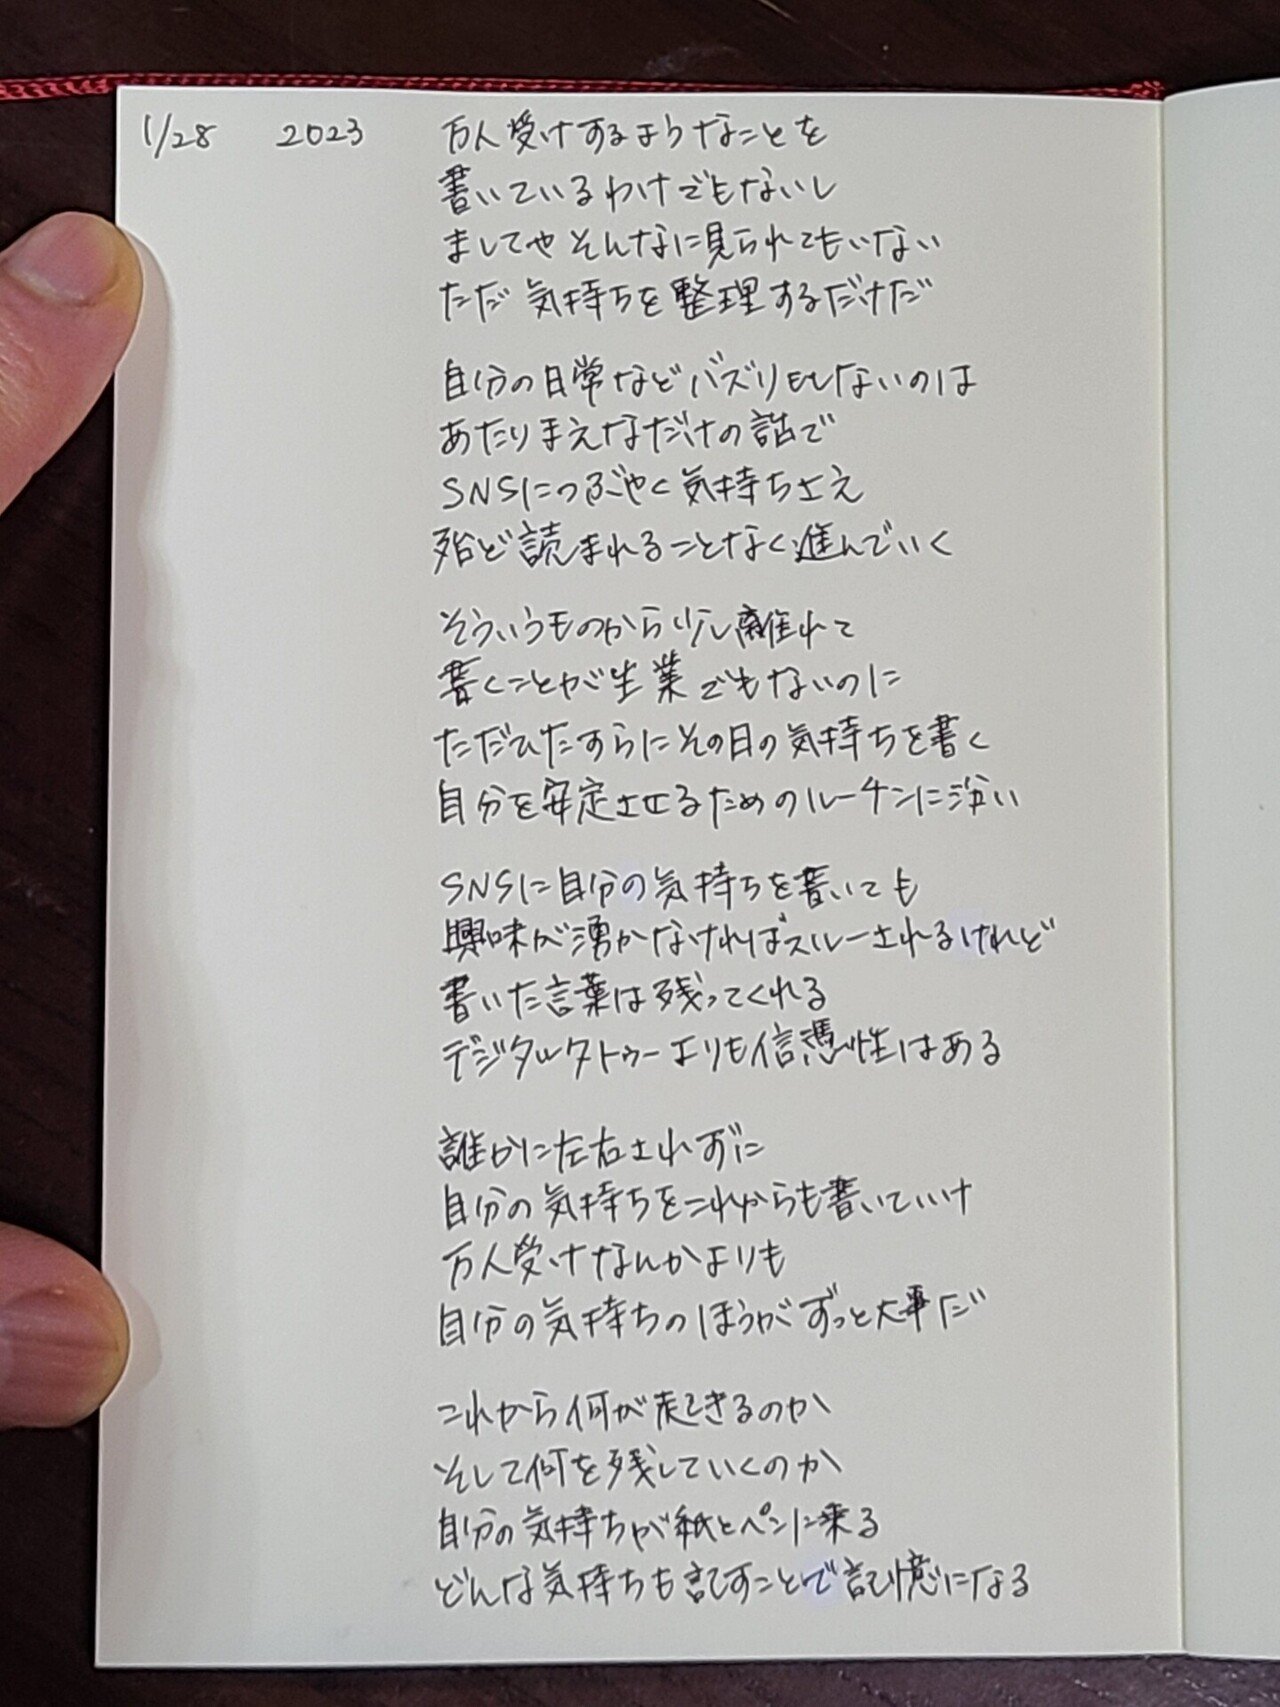 1/28 2023 万人受けするようなことを
書いているわけでもないし
ましてやそんなに見られてもいない
ただ気持ちを整理するだけだ
自分の日常などバズりもしないのは
あたりまえなだけの話で
SNSにつぶやく気持ちさえ
殆ど読まれることなく進んでいく
そういうものから少し離れて
書くことが生業でもないのに
ただひたすらにその日の気持ちを書く
自分を安定させるためのルーチンに近い
SNSに自分の気持ちを書いても
興味が湧かなければスルーされるけれど
書いた言葉は残ってくれる
デジタルタトゥーよりも信憑性はある
誰かに左右されずに
自分の気持ちをこれからも書いていけ
万人受けなんかよりも
自分の気持ちのほうがずっと大事だ
これから何が起きるのか
そして何を残していくのか
自分の気持ちが紙とペンに来る
どんな気持ちも記すことで記憶になる